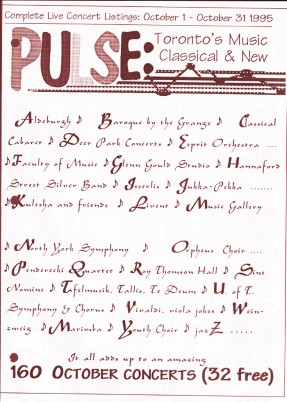 Complete Live Concert Listings: October 1 - October 31 1995
PULSE:
Toronto's Music
Classical & New
Aldeburgh ♪ Baroque by the Grange ♪ Classical
Cabaret ♪ Deer Park Concerts ♪ Esprit Orchestra ...
♪ Faculty of Music ♪ Glenn Gould Studio ♪ Hannaford
Street Silver Band ♪ Isserlis ♪ Jukka-Pekka .......
♪ Kulesha and friends ♪ Livent ♪ Music Gallery
♪ North York Symphony ♪ Orpheus Choir ....
♪ Penderecki Quartet ♪ Roy Thomson Hall ♪ Sine
Nomine ♪ Tafelmusik, Tallis, Te Deum ♪ U. of T.
Symphony & Chorus ♪ Vivaldi, viola jokes ♪ Wein-
zweig ♪ Marimba ♪ Youth Choir ♪ jazZ .....
It all adds up to an amazing
160 OCTOBER CONCERTS (32 free)